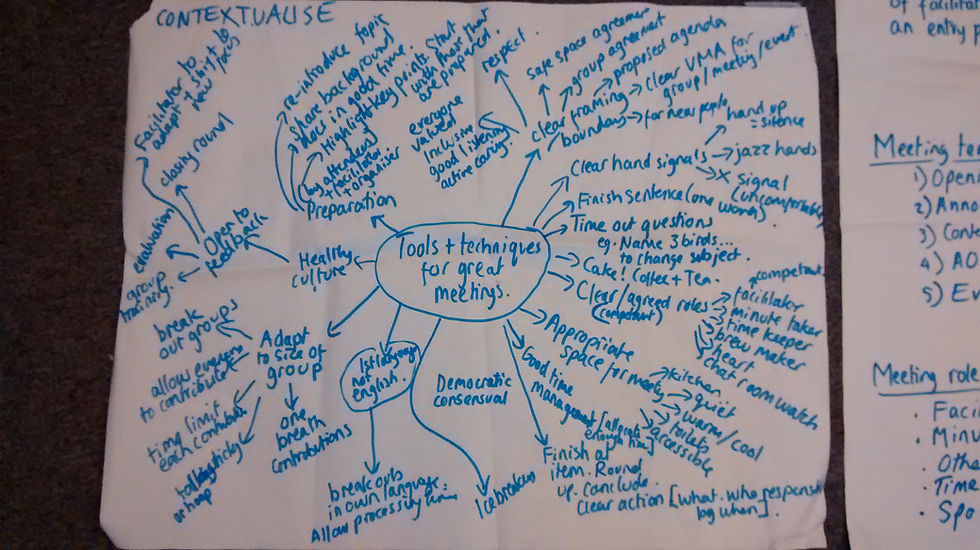 CONTEXTUALISE
Facilitator to
adapt + shift to
new
closing round
evaluation
Open to
feedback
group
training.
Healthy
culture
re-introduce topic
share background
docs in good time.
Highlight key points. Start
with those that
are prepared.
by attendees
+ facilitator
+ organiser
Preparation
respect.
everyone
valued
Inclusive
good listening
active caring.
safe space agreement
group agreement
proposed agenda
clear framing → clear VMA for
group/meeting/event
boundary → for new people
Clear hand signals
hand up
= silence
jazz hands
X signal
(uncomfortable)
Finish Sentence (one woman)
Time out questions
eg. Name 3 birds...
to change subject.
Cake! Coffee + Tea.
Clear/agreed roles
(competent)
competent.
facilitator
minute taker
time keeper
brew maker
heart
chat room watch
Appropriate
space for meeting
kitchen
quiet
warm/cool
toilets
accessible
Good time
management [allocate
enough time]
Finish at
item. Round
up. Conclude.
Clear action [what. who responsible
by when].
Tools + techniques
for great
meetings.
Democratic
consensual
Icebreakers
1st language
not
english.
breakouts
in own language
Allow processing time
Adapt
to size of
group
break
out groups
allows everyone
to contribute
time limit
each contribution
talking stick
or hoop
one
breath
contributions
of facilitat
an entry p
Meeting te
1) Openi
2) Anno
3) Conte
4) AO
5) Ev
Meeting role
. Faci
. Minu
. Othe
. Time
. Spo